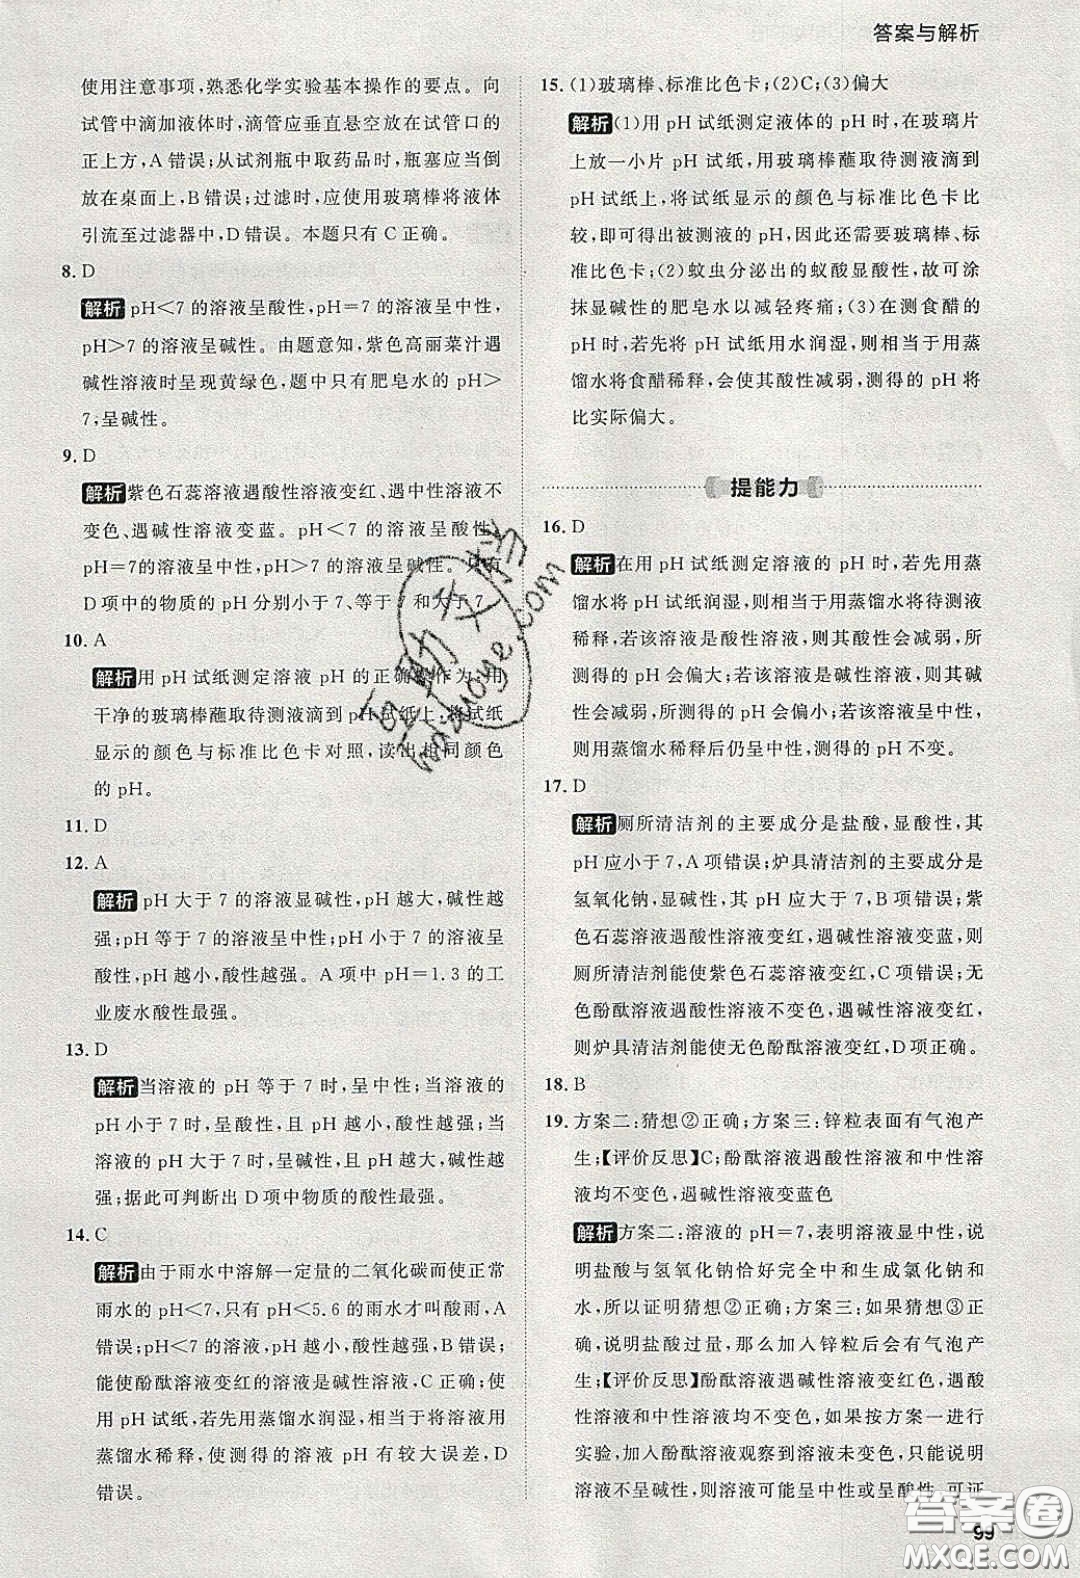 答案与解析
使用注意事项,熟悉化学实验基本操作的要点。向
试管中滴加液体时,滴管应垂直悬空放在试管口的
正上方,A错误;从试剂瓶中取药品时,瓶塞应当倒
放在桌面上,B错误;过滤时,应使用玻璃棒将液体
引流至过滤器中,D错误。本题只有C正确。
8. D
解析 pH<7的溶液呈酸性,pH=7的溶液呈中性,
pH>7的溶液呈碱性。由题意知,紫色高丽菜汁遇
碱性溶液时呈现黄绿色,题中只有肥皂水的pH>
7;呈碱性。
9. D
解析 紫色石蕊溶液遇酸性溶液变红、遇中性溶液不
变色、遇碱性溶液变蓝。pH<7的溶液呈酸性,
pH=7的溶液呈中性,pH>7的溶液呈碱性。只有
D项中的物质的pH分别小于7、等于7和大于7
10. A
解析 用pH试纸测定溶液pH的正确操作为:用
干净的玻璃棒蘸取待测液滴到pH试纸上,将试纸
显示的颜色与标准比色卡对照,读出相同颜色
的pH。
11. D
12. A
解析 pH大于7的溶液显碱性,pH越大,碱性越
强;pH等于7的溶液呈中性;pH小于7的溶液呈
酸性,pH越小,酸性越强。A项中pH=1.3的工
业废水酸性最强。
13. D
解析 当溶液的pH等于7时,呈中性;当溶液的
pH小于7时,呈酸性,且pH越小,酸性越强;当
溶液的pH大于7时,呈碱性,且pH越大,碱性越
强;据此可判断出D项中物质的酸性最强。
14. C
解析 由于雨水中溶解一定量的二氧化碳而使正常
雨水的pH<7,只有pH<5.6的雨水才叫酸雨,A
错误;pH<7的溶液,pH越小,酸性越强,B错误;
能使酚酞溶液变红的溶液是碱性溶液,C正确;使
用pH试纸,若先用蒸馏水润湿,相当于将溶液用
蒸馏水稀释,使测得的溶液pH有较大误差,D
错误。
15. (1)玻璃棒、标准比色卡;(2)C;(3)偏大
解析 (1)用pH试纸测定液体的pH时,在玻璃片
上放一小片pH试纸,用玻璃棒蘸取待测液滴到
pH试纸上,将试纸显示的颜色与标准比色卡比
较,即可得出被测液的pH,因此还需要玻璃棒、标
准比色卡;(2)蚊虫分泌出的蚁酸显酸性,故可涂
抹显碱性的肥皂水以减轻疼痛;(3)在测食醋的
pH时,若先将pH试纸用水润湿,则相当于用蒸
馏水将食醋稀释,会使其酸性减弱,测得的pH将
比实际偏大。
提能力
16. D
解析 在用pH试纸测定溶液的pH时,若先用蒸
馏水将pH试纸润湿,则相当于用蒸馏水将待测液
稀释,若该溶液是酸性溶液,则其酸性会减弱,所
测得的pH会偏大;若该溶液是碱性溶液,则其碱
性会减弱,所测得的pH会偏小;若该溶液呈中性,
则用蒸馏水稀释后仍呈中性,测得的pH不变。
17. D
解析 厕所清洁剂的主要成分是盐酸,显酸性,其
pH应小于7,A项错误;炉具清洁剂的主要成分是
氢氧化钠,显碱性,其pH应大于7,B项错误;紫
色石蕊溶液遇酸性溶液变红,遇碱性溶液变蓝,则
厕所清洁剂能使紫色石蕊溶液变红,C项错误;无
色酚酞溶液遇酸性溶液不变色,遇碱性溶液变红,
则炉具清洁剂能使无色酚酞溶液变红,D项正确。
18. B
19. 方案二:猜想②正确;方案三:锌粒表面有气泡产
生;【评价反思】C;酚酞溶液遇酸性溶液和中性溶
液均不变色,遇碱性溶液变蓝色
解析 方案二:溶液的pH=7,表明溶液显中性,说
明盐酸与氢氧化钠恰好完全中和生成氯化钠和
水,所以证明猜想②正确;方案三:如果猜想③正
确,说明盐酸过量,那么加入锌粒后会有气泡产
生;【评价反思】酚酞溶液遇碱性溶液变红色,遇酸
性溶液和中性溶液均不变色,如果按方案一进行
实验,加入酚酞溶液观察到溶液未变色,只能说明
溶液不显碱性,则溶液可能呈中性或呈酸性,可证
99
答案圈
MXQE.COM